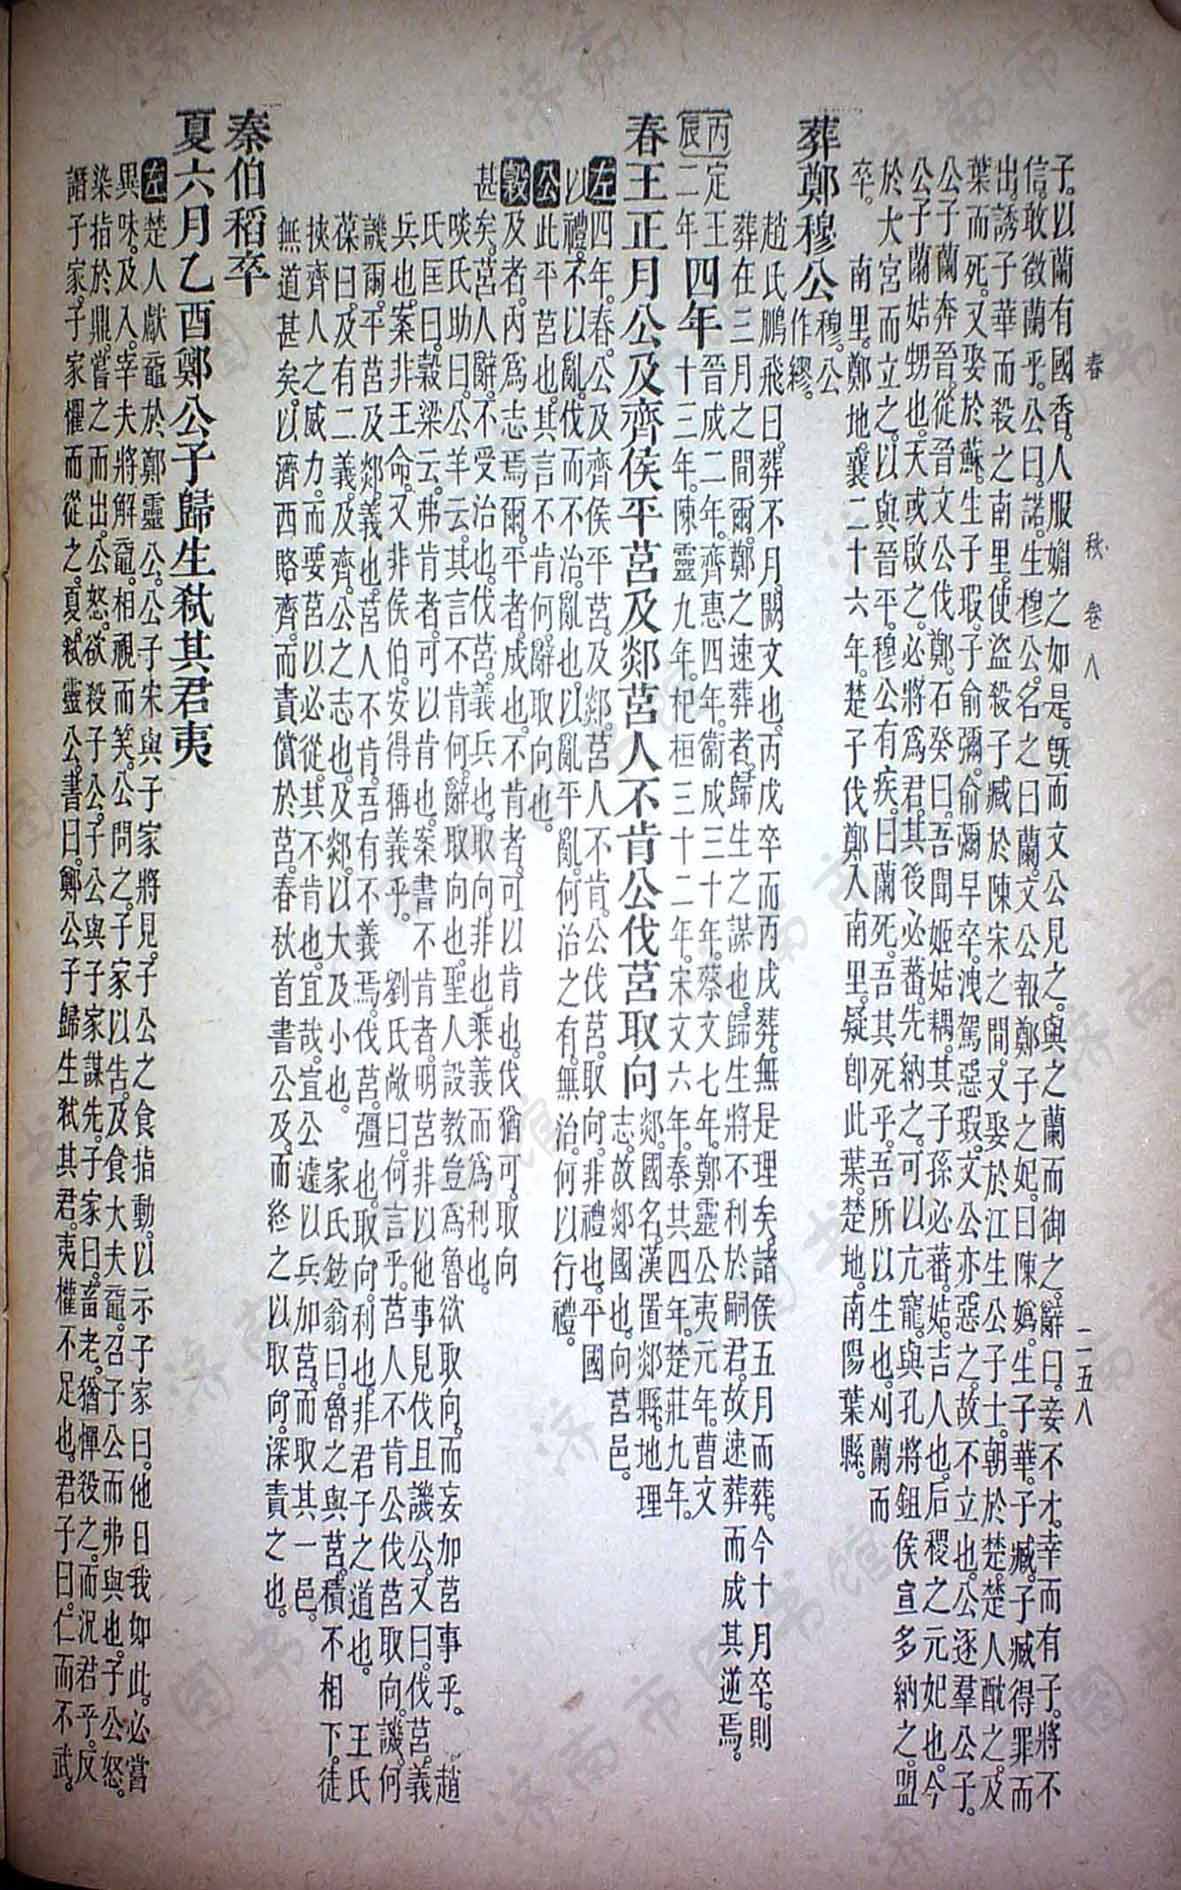 春 秋 卷八 二五八
子。以蘭有國香。人服媚之如是。旣而文公見之。與之蘭而御之。辭曰。妾不才。幸而有子。將不
信。敢徵蘭乎。公曰。諾。生穆公。名之曰蘭。文公報鄭子之妃。曰陳嬀。生子華。子臧。子臧得罪而
出。誘子華而殺之南里。使盜殺子臧於陳宋之間。又娶於江。生公子士。朝於楚。楚人酖之。及
葉而死。又娶於蘇。生子瑕。子俞彌。俞彌早卒。洩駕惡瑕。文公亦惡之。故不立也。公逐羣公子。
公子蘭奔晉。從晉文公伐鄭。石癸曰。吾聞姬姞耦。其子孫必蕃。姞。吉人也。后稷之元妃也。今
公子蘭。姞甥也。天或啟之。必將爲君。其後必蕃。先納之。可以亢寵。與孔將鉏侯宣多納之。盟
於大宮而立之。以與晉平。穆公有疾。曰。蘭死。吾其死乎。吾所以生也。刈蘭而
卒。 南里。鄭地。襄二十六年。楚子伐鄭。入南里。疑卽此葉。楚地。南陽葉縣。
葬鄭穆公 穆。公作繆。
趙氏鵬飛曰。葬不月。闕文也。丙戌卒而丙戌葬。無是理矣。諸侯五月而葬。今十月卒。則
葬在三月之間爾。鄭之速葬者。歸生之謀也。歸生將不利於嗣君。故速葬而成其逆焉。
丙辰 定王二年 四年 晉成二年。齊惠四年。衞成三十年。蔡文七年。鄭靈公夷元年。曹文十三年。陳靈九年。杞桓三十二年。宋文六年。秦共四年。楚莊九年。
春王正月。公及齊侯平莒及郯。莒人不肯。公伐莒取向 郯。國名。漢置郯縣。地理志。故郯國也。向。莒邑。
左 四年。春。公及齊侯平莒及郯。莒人不肯。公伐莒。取向。非禮也。平國
以禮。不以亂。伐而不治。亂也。以亂平亂。何治之有。無治。何以行禮。
公 此平莒也。其言不肯何。辭取向也。
穀 及者。內爲志焉爾。平者。成也。不肯者。可以肯也。伐猶可。取向
甚矣。莒人辭。不受治也。伐莒。義兵也。取向。非也。乘義而爲利也。
啖氏助曰。公羊云。其言不肯何。辭取向也。聖人設教。豈爲魯欲取向。而妄加莒事乎。 趙
氏匡曰。穀梁云。弗肯者。可以肯也。案書不肯者。明莒非以他事見伐。且譏公。又曰。伐莒。義
兵也。案非王命。又非侯伯。安得稱義乎。 劉氏敞曰。何言乎。莒人不肯。公伐莒取向。譏。何
譏爾。平莒及郯。義也。莒人不肯。吾有不義焉。伐莒。彊也。取向。利也。非君子之道也。 王氏
葆曰。及有二義。及齊。公之志也。及郯。以大及小也。 家氏鉉翁曰。魯之與莒。積不相下。徒
挾齊人之威力。而要莒以必從。其不肯也。宜哉。宣公遽以兵加莒。而取其一邑。
無道甚矣。以濟西賂齊。而責償於莒。春秋首書公及。而終之以取向。深責之也。
秦伯稻卒
夏六月乙酉。鄭公子歸生弒其君夷
左 楚人獻黿於鄭靈公。公子宋與子家將見。子公之食指動。以示子家曰。他日我如此。必嘗
異味。及入。宰夫將解黿。相視而笑。公問之。子家以告。及食大夫黿。召子公而弗與也。子公怒。
染指於鼎。嘗之而出。公怒。欲殺子公。子公與子家謀先。子家曰。畜老。猶憚殺之。而況君乎。反
譖子家。子家懼而從之。夏。弒靈公。書曰。鄭公子歸生弒其君夷。權不足也。君子曰。仁而不武。